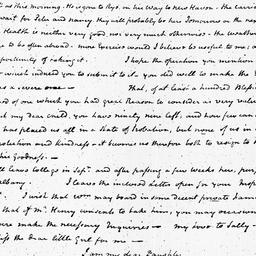 as this morning. He is gone to Rye, on his way to New Haven. The carria
wait for Peter and nancy. they will probably be here Tomorrow on the ne
Health is neither very good, nor very much otherwise. the weather
to be often abroad. more Exercise would I believe be useful to me; a
opportunity of taking it. I hope the operation you mention
which induced you to submit to it. you did well to make the
a severe one — That, of at least a hundred Bless
of one which you had great Reason to consider as very valu
my Dear Child, you have ninety nine left; and how few can
has placed us all in a State of Probation, but none of us in
protection and kindness — it becomes us therefore both to resign to
his Goodness. —
leaves college in Sepr. and after passing a few weeks here, pur
albany. I leave the inclosed Letter open for your
I wish that Wm. may board in some decent private Fam
that if Mr. Henry consents to take him, you may occasion
make the necessary Enquiries — my Love to Sally —
Kiss the Dear little Girl for me —
I am my dear Daughter